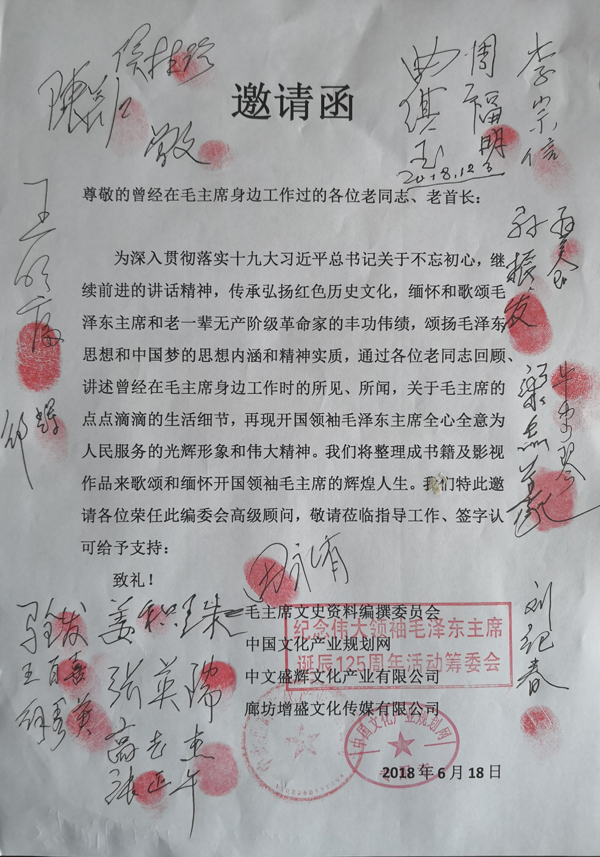 侯桂珍
李宗信
周福明
曲琪玉
邀请函
2018.12.3
尊敬的曾经在毛主席身边工作过的各位老同志、老首长：
孙振发
为深入贯彻落实十九大习近平总书记关于不忘初心，继
续前进的讲话精神，传承弘扬红色历史文化，缅怀和歌颂毛
泽东主席和老一辈无产阶级革命家的丰功伟绩，颂扬毛泽东
思想和中国梦的思想内涵和精神实质，通过各位老同志回顾、
讲述曾经在毛主席身边工作时的所见、所闻，关于毛主席的
点点滴滴的生活细节，再现开国领袖毛泽东主席全心全意为
人民服务的光辉形象和伟大精神。我们将整理成书籍及影视
作品来歌颂和缅怀开国领袖毛主席的辉煌人生。我们特此邀
请各位荣任此编委会高级顾问，敬请莅临指导工作、签字认
可给予支持：
致礼！
刘纪春
姜积珠
毛主席文史资料编撰委员会
纪念伟大领袖毛泽东主席
诞辰125周年活动筹委会
中国文化产业规划网
王百喜
张英瑞
中文盛辉文化产业有限公司
高志杰
廊坊增盛文化传媒有限公司
张正午
中国文化产业规划网
2018 年 6 月 18 日